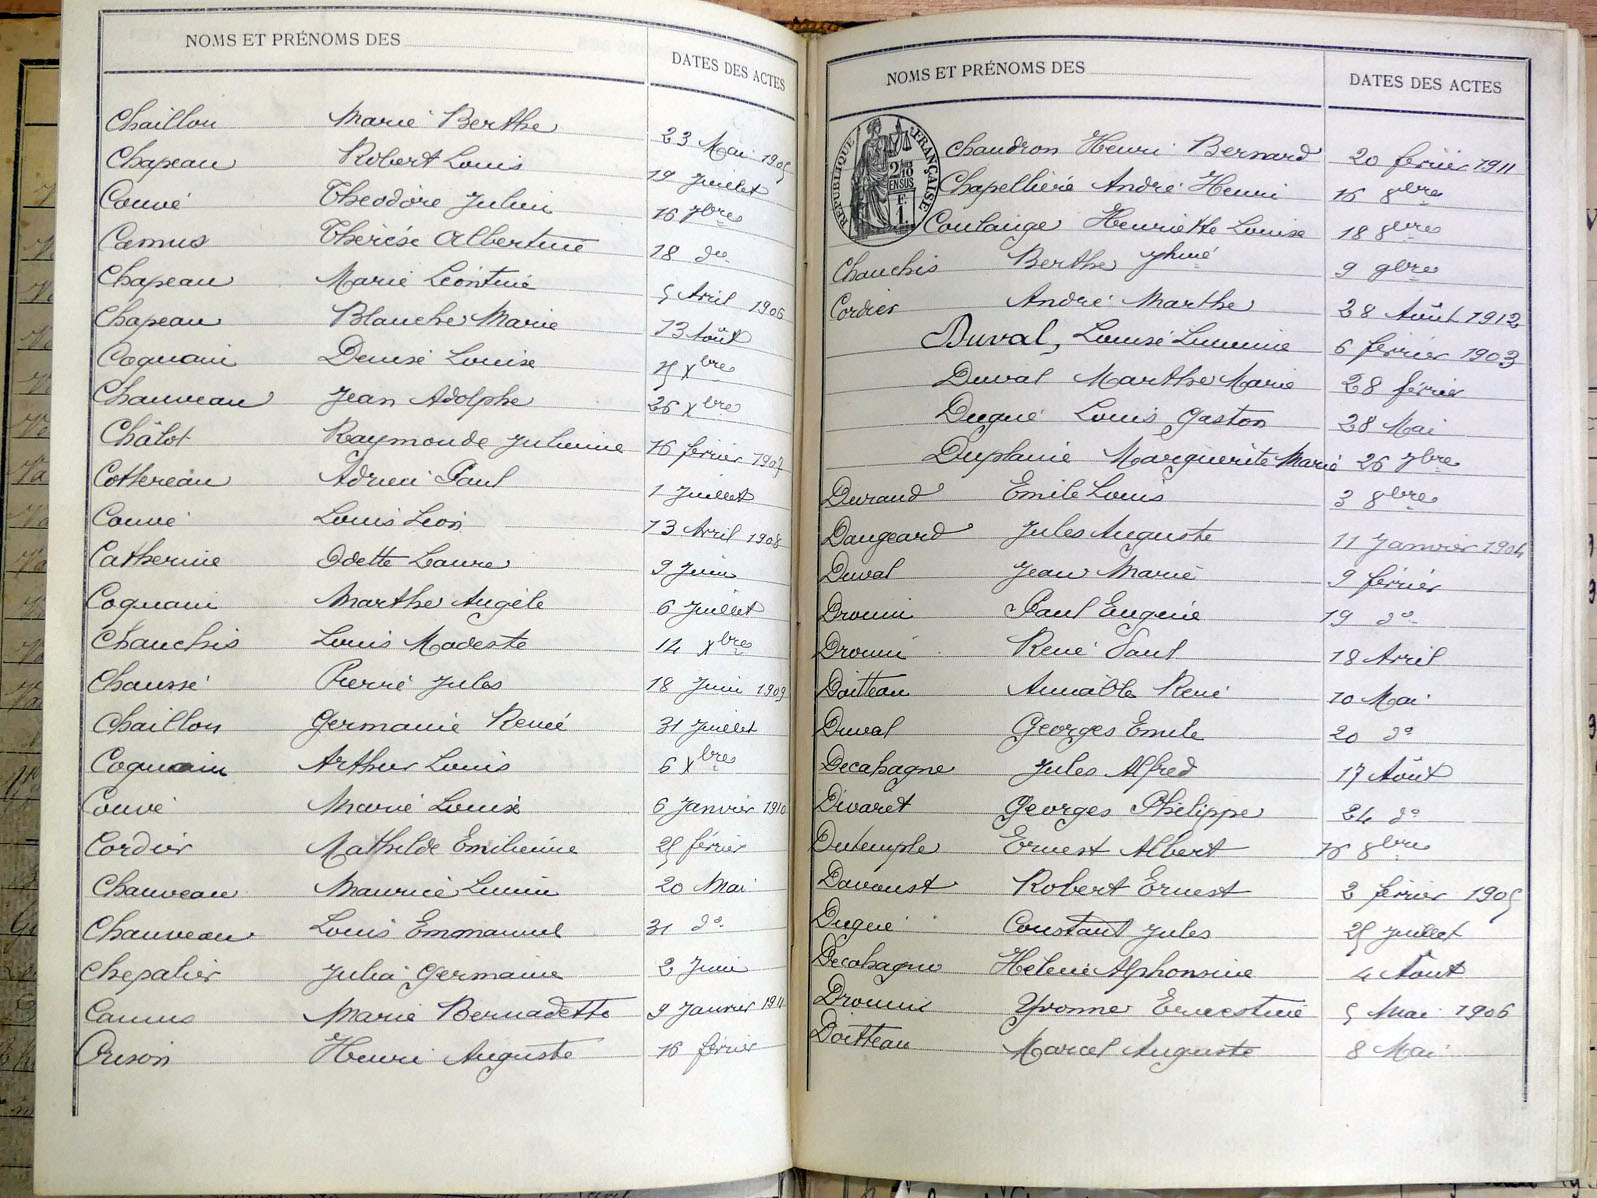 NOMS ET PRÉNOMS DES
DATES DES ACTES
Chaillou Marie Berthe 23 Mai 1905
Chapeau Robert Louis 19 Juillet
Couvé Théodore Julien 16 7bres
Camus Thérèse Albertine 18 do
Chapeau Marie Léontine 5 Avril 1906
Chapeau Blanche Marie 13 Août
Coquain Denise Louise 15 Xbres
Chauveau Jean Adolphe 26 Xbre
Châlot Raymonde Julienne 16 février 1907
Cottereau Adrien Paul 1 Juillet
Couvé Louis Léon 13 Avril 1908
Catherine Odette Laure 9 Juin
Coquain Marthe Angèle 6 Juillet
Chauchis Louis Modeste 14 Xbres
Chaussé Pierre Jules 18 Juin 1909
Chaillou Germaine Renée 31 Juillet
Coquain Arthur Louis 6 Xbres
Couvé Marie Louise 6 Janvier 1910
Cordier Mathilde Emilienne 25 février
Chauveau Maurice Lucien 20 Mai
Chauveau Louis Emmanuel 31 do
Chevalier Julia Germaine 2 Juin
Camus Marie Bernadette 9 Janvier 1911
Cuson Henri Auguste 16 février
NOMS ET PRÉNOMS DES
DATES DES ACTES
RÉPUBLIQUE FRANÇAISE
Chaudron Henri Bernard 20 février 1911
Chapellière André Henri 16 8bres
Coulange Henriette Louise 18 8bres
Chauchis Berthe 9 9bres
Cordier André Marthe 28 Août 1912
Duval, Louise Lucienne 6 février 1903
Duval Marthe Marie 28 février
Dugué Louis Gaston 28 Mai
Duplaine Marguerite Marie 26 7bres
Durand Emile Louis 3 8bres
Daugeard Jules Auguste 11 Janvier 1904
Duval Jean Marie 9 février
Drouin Paul Eugène 19 do
Drouin René Paul 18 Avril
Doitteau Aimable René 10 Mai
Duval Georges Emile 20 do
Decahagne Jules Alfred 17 Août
Divaret Georges Philippe 24 do
Dutemple Ernest Albert 16 8bres
Davoust Robert Ernest 2 février 1905
Dugué Constant Jules 25 Juillet
Decahagne Hélène Alphonsine 4 Août
Drouin Yvonne Ernestine 5 Mai 1906
Doitteau Marcel Auguste 8 Mai